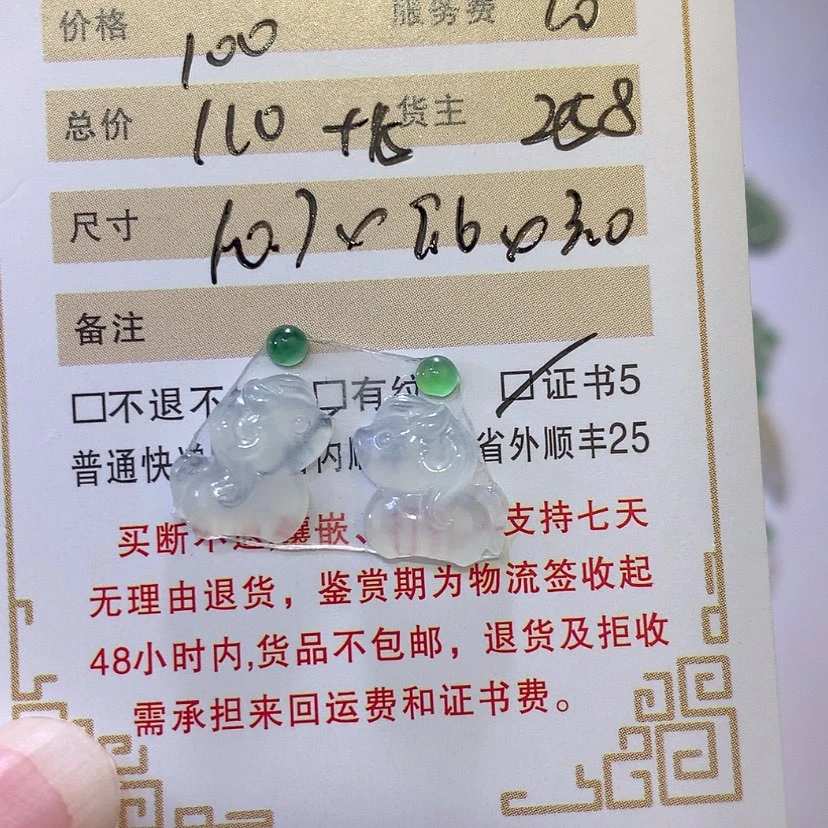 价格 100 服务费 10
总价 110 +15 货主 258
尺寸 10.7 x 7.6 x 3.0
备注
□不退不 □有纹 □证书5
普通快 内顺 省外顺丰25
买断不退,镶嵌、 支持七天
无理由退货，鉴赏期为物流签收起
48小时内,货品不包邮，退货及拒收
需承担来回运费和证书费。